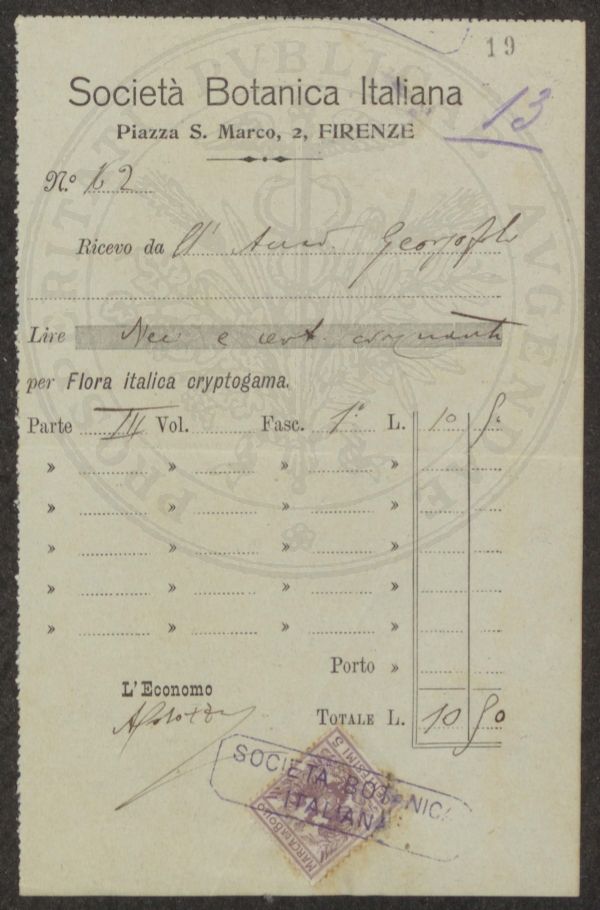 19
Società Botanica Italiana
13
Piazza S. Marco, 2, FIRENZE
N.º 162
Ricevo da l' Accad. Georgofili
Lire e cent. cinquanta
per Flora italica cryptogama.
Parte III Vol. Fasc. 1º L. 10 50
» » » »
» » » »
» » » »
» » » »
» » » »
Porto »
L'Economo
TOTALE L. 10 50
SOCIETÀ BOTANICA
ITALIANA
MARCA DA BOLLO
CENTESIMI 5
PROSPERITATI PVBLICAE AVGENDAE